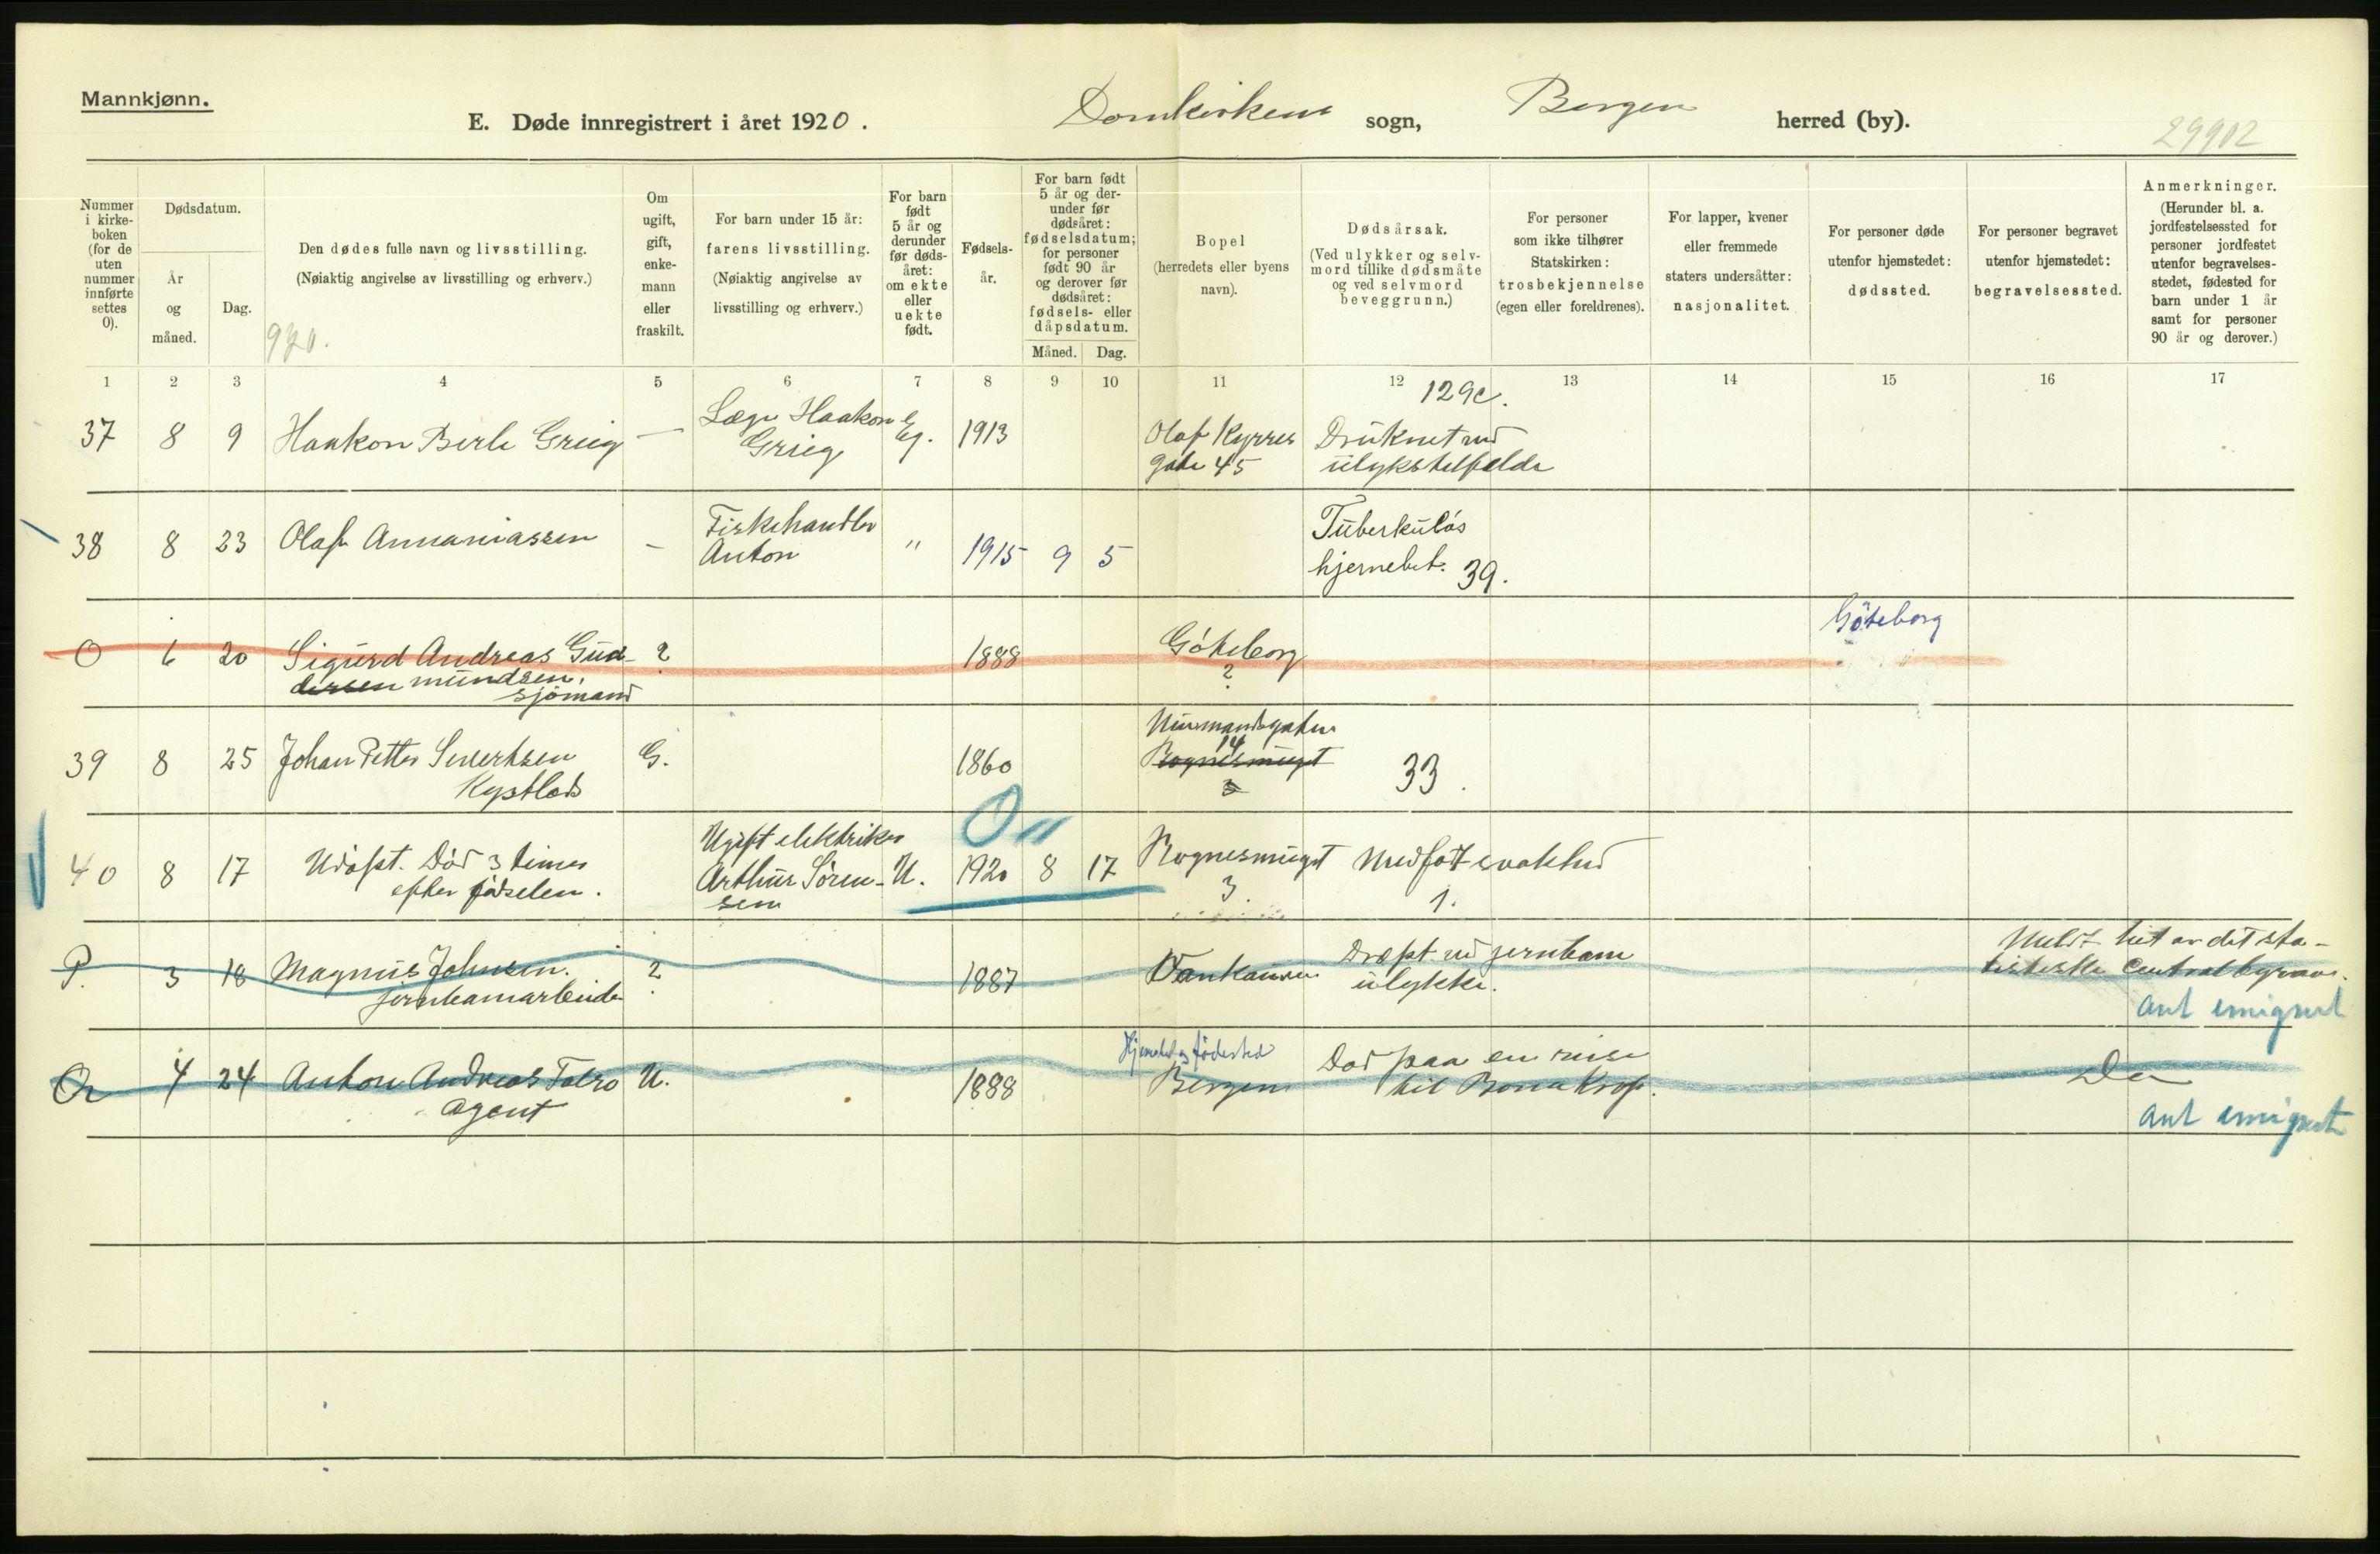 Mannkjønn.
E. Døde innregistrert i året 1920. Domkirkens sogn, Bergen herred (by).
29912
Nummer i kirke-boken (for de uten nummer innførte settes 0).
Dødsdatum.
År og måned.
Dag.
Den dødes fulle navn og livsstilling.
(Nøiaktig angivelse av livsstilling og erhverv.)
920.
Om ugift, gift, enke-mann eller fraskilt.
For barn under 15 år:
farens livsstilling.
(Nøiaktig angivelse av
livsstilling og erhverv.)
For barn født 5 år og derunder før døds-året: om ekte eller uekte født.
Fødsels-år.
For barn født 5 år og der-under før dødsåret: fødselsdatum; for personer født 90 år og derover før dødsåret: fødsels- eller dåpsdatum.
Måned. Dag.
Bopel
(herredets eller byens
navn).
Dødsårsak.
(Ved ulykker og selv-
mord tillike dødsmåte
og ved selvmord
beveggrunn.)
For personer
som ikke tilhører
Statskirken:
trosbekjennelse
(egen eller foreldrenes).
For lapper, kvener
eller fremmede
staters undersåtter:
nasjonalitet.
For personer døde
utenfor hjemstedet:
dødssted.
For personer begravet
utenfor hjemstedet:
begravelsessted.
Anmerkninger.
(Herunder bl. a.
jordfestelsessted for
personer jordfestet
utenfor begravelses-
stedet, fødested for
barn under 1 år
samt for personer
90 år og derover.)
1 2 3 4 5 6 7 8 9 10 11 12 13 14 15 16 17
129c.
37 8 9 Haakon Berle Grieg — Læge Haakon Grieg Eg. 1913 Olaf Kyrres gade 45 Druknet ved ulykstilfælde
38 8 23 Olaf Annaniassen — Fiskehandler Anton " 1915 9 5 Tuberkuløs hjernebet. 39.
0 6 20 Sigurd Andreas Gud-
mundsen, sjømand ? 1888 Göteborg ? Göteborg
39 8 25 Johan Petter Sivertsen Kystlods G. 1860 14 Rognesmuget 3 33.
40 8 17 Udøpt. Død 3 timer efter fødselen. Ugift elektriker Arthur Søren-
sen U. 1920 8 17 Rognesmuget 3. Medfødt svakhed 1.
P. 3 18 Magnus Johnsen. jernbanearbeider ? 1887 Dræpt ved jernbane ulykke. Meldt hit av det sta-
tistiske Centralbyraa.
ant emigrert
4 24 Anton Andreas agent U. 1888 Hjemsted og fødested Bergen Død paa en reise til
Do
ant emigrert